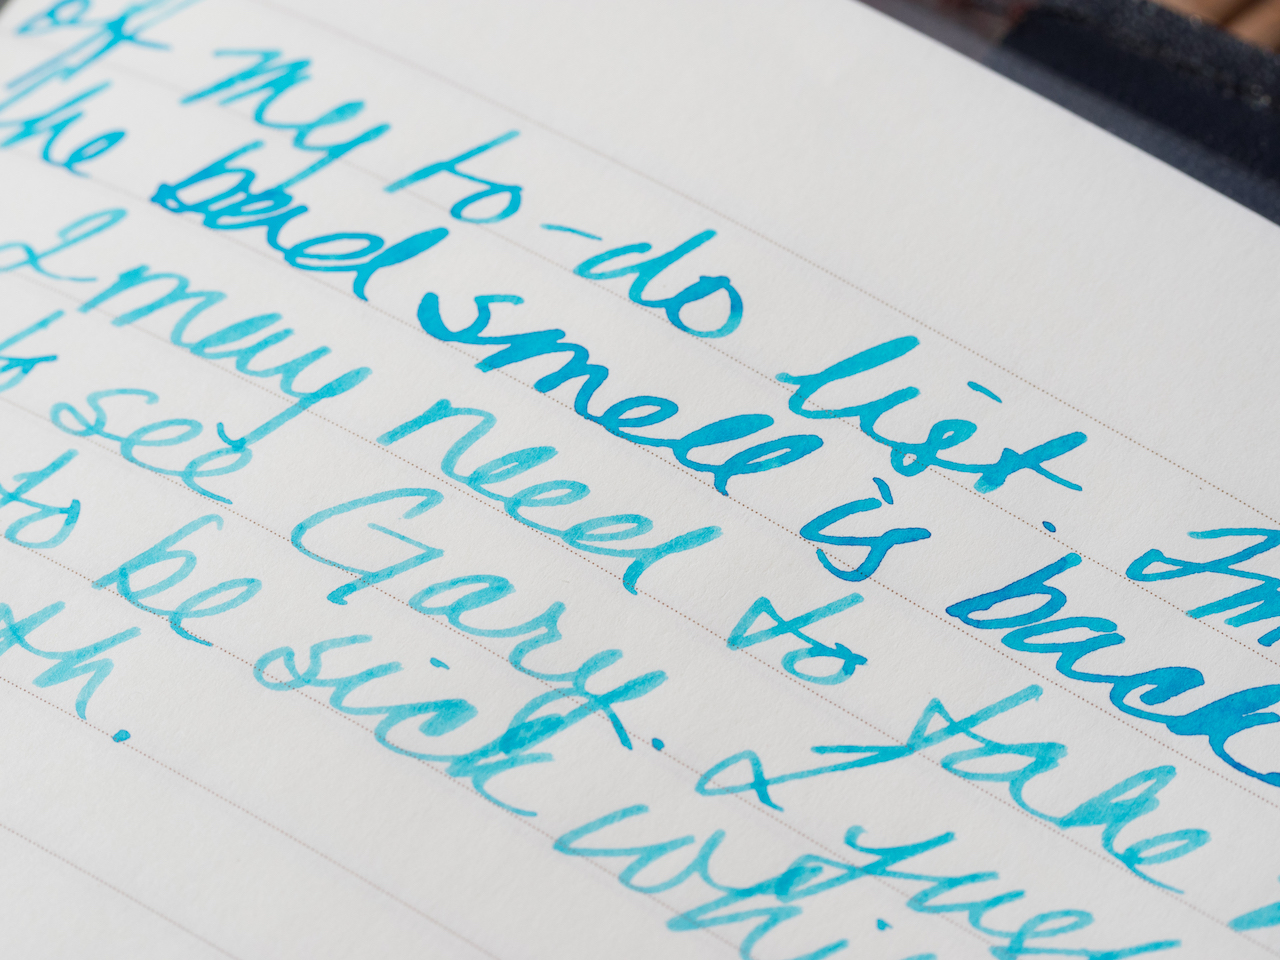 of my to-do list. I'm
the bad smell is back
I may need to take
to see Gary. I just
to be sick whi
th.